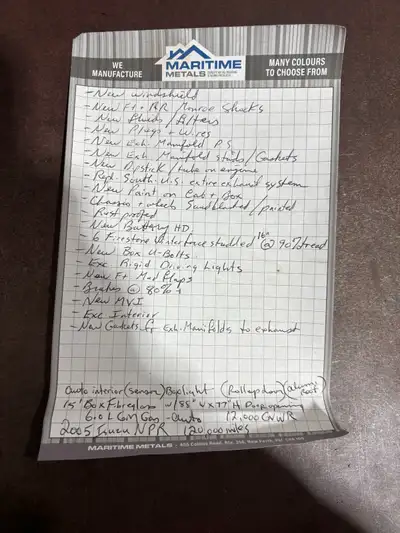 WE MANUFACTURE
MARITIME METALS
MANY COLOURS TO CHOOSE FROM
- New windshield
- New Ft + RR / Monroe Shocks
- New fluids / filters
- New Plugs + Wires
- New Exh. Manifold P.S
- New Exh. Manifold studs / Gaskets
- New Dipstick / tube on engine
South. U.S. entire exhaust system
- New Paint on Cab + Box
- Chassis + wheels Sandblasted / painted
- Rust proofed
New Battery HD
- 6 Firestone Winterforce studded @ 90% tread
- New Box U-Bolts
- Exc Rigid Driving Lights
- New Ft Mud flaps
- Brakes @ 80%
- New MVI
- Exc Interior
- New Gaskets ft Exh. Manifolds to exhaust
interior (sensor) Box light (Roll up door)
15' Box Fibreglass w/ 85" W x 77" H Door opening
6.0 L GM Gas - Auto 12,000 GVWR
2005 Isuzu NPR 120,000 miles
MARITIME METALS